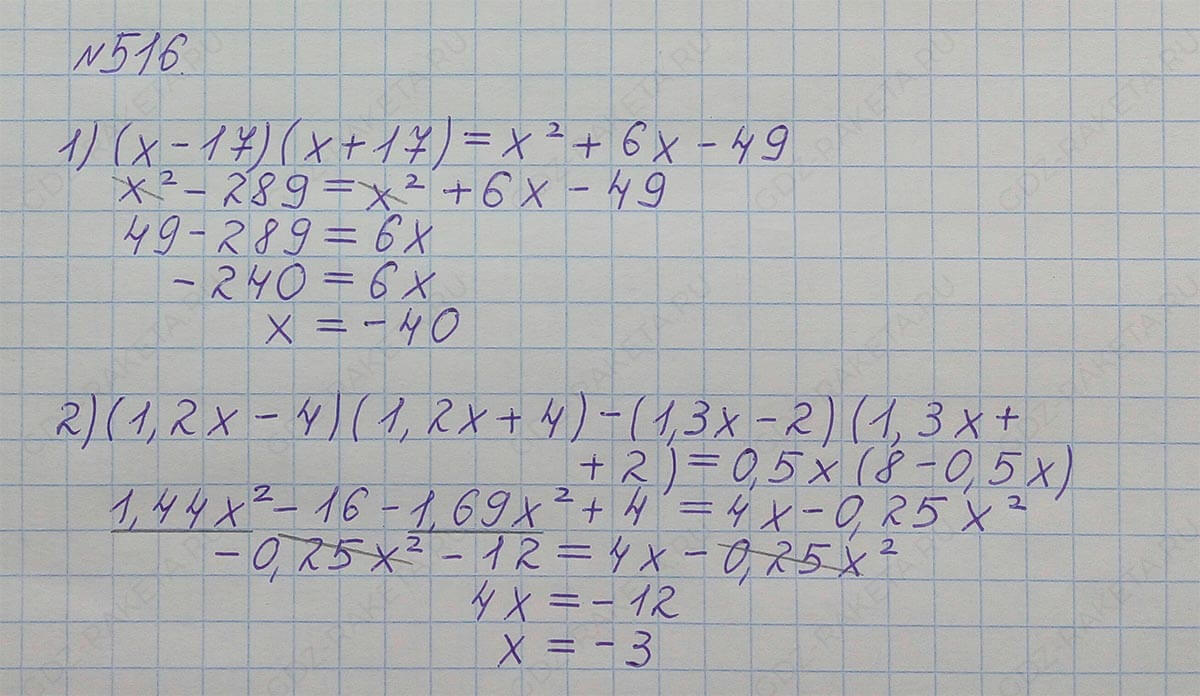 №516
1) (x - 17)(x + 17) = x² + 6x - 49
x² - 289 = x² + 6x - 49
49 - 289 = 6x
- 240 = 6x
x = - 40
2) (1,2x - 4)(1,2x + 4) - (1,3x - 2)(1,3x +
+ 2) = 0,5x (8 - 0,5x)
1,44x² - 16 - 1,69x² + 4 = 4x - 0,25x²
- 0,25x² - 12 = 4x - 0,25x²
4x = - 12
x = - 3
GDZ-RAKETA.RU